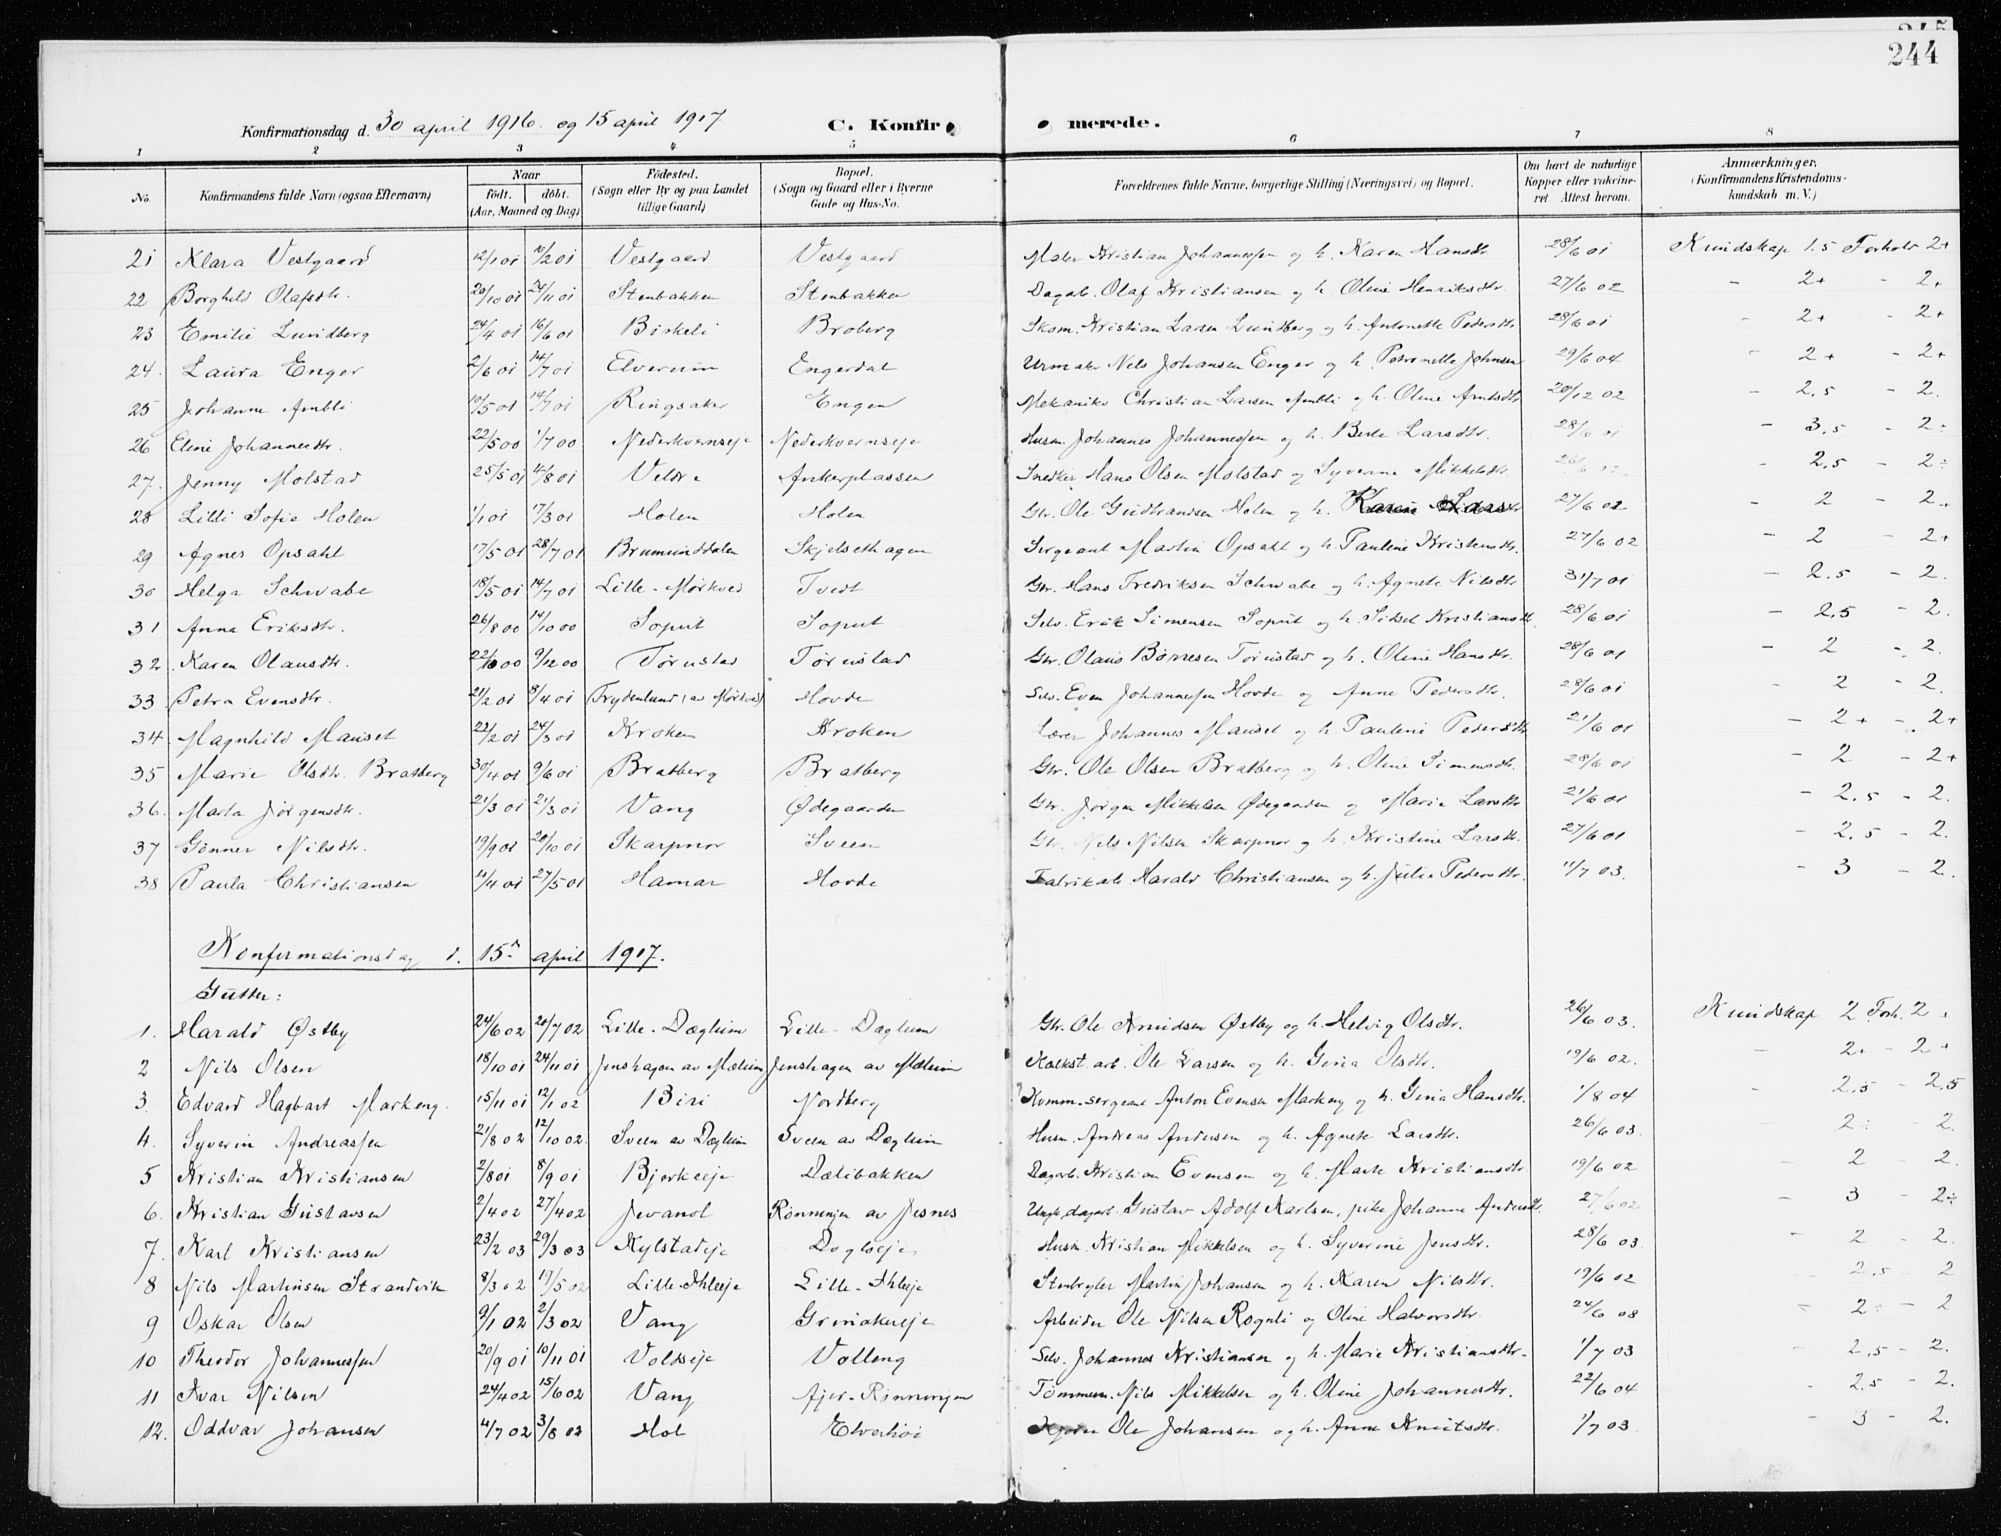 245
244
Konfirmationsdag d. 30 april 1916. og 15 april 1917 C. Konfirmerede.
1 2 3 4 5 6 7 8
No. Konfirmandens fulde Navn (ogsaa Efternavn) Naar født. døbt. (Aar, Maaned og Dag) Fødested. (Sogn eller By og paa Landet tillige Gaard) Bopæl. (Sogn og Gaard eller i Byerne Gade og Hus-No. Forældrenes fulde Navne, borgerlige Stilling (Næringsvei) og Bopæl. Om havt de naturlige Kopper eller vakcineret. Attest herom. Anmærkninger. (Konfirmandens Kristendomskundskab m. V.)
21 Klara Vestgaard 12/1 01 10/2 01 Vestgaard Vestgaard Maler Kristian Johannessen og h. Karen Hansdtr. 28/6 01 Kundskap 1.5 Forhold 2+
22 Borghild Olafsdtr. 20/10 01 24/11 01 Stenbakken Stenbakken Dagarb. Olaf Kristiansen og h. Oline Henriksdtr. 27/6 02 - 2+ - 2+
23 Emilie Lundberg 24/4 01 16/6 01 Birkeli Broberg Skom. Kristian Larsen Lundberg og h. Antonette Pedersdtr 28/6 01 - 2+ - 2+
24. Laura Enger 2/6 01 14/7 01 Elverum Engerdal Urmaker Nils Johansen Enger og h. Petronelle Johnsen 29/6 04 - 2+ - 2+
25 Johanne Ambli 10/5 01 14/7 01 Ringsaker Engen Mekaniker Christian Larsen Ambli og h. Oline Arntsdtr 20/12 02 - 2,5 - 2.
26 Eline Johannesdtr. 22/5 00 1/7 00 Nederkvernseje Nederkvernseje Husm. Johannes Johannessen og h. Berte Larsdtr. 28/6 01 - 3,5 - 2÷
27. Jenny Molstad 25/5 01 4/8 01 Veldre Ankerplassen Snedker Hans Olsen Molstad og Syverine Mikkelsdtr 26/6 02 - 2,5 - 2÷
28 Lilli Sofie Holen 1/1 01 17/3 01 Holen Holen Gbr. Ole Gudbrandsen Holen og h. Karen Larsdtr 27/6 02 - 2 - 2+
29 Agnes Opsahl 17/5 01 28/7 01 Brumunddalen Skjelsethagen Sergeant Martin Opsahl og h. Pauline Kristensdtr. 27/6 02 - 2 - 2+
30 Helga Schwabe 18/5 01 14/7 01 Lille-Mørkved Tvedt Gbr. Hans Fredriksen Schwabe og h. Agnete Nilsdtr 31/7 01 - 2.5 - 2.
31 Anna Eriksdtr. 26/8 00 14/10 00 Soput Soput Selv. Erik Simensen Soput og h. Sidsel Kristiansdtr 28/6 01 - 2,5 - 2.
32. Karen Olausdtr. 22/10 00 9/12 00 Tørustad Tørustad Gbr. Olaus Børresen Tørustad og h. Oline Hansdtr. 28/6 01 - 2 - 2.
33 Petra Evensdtr. 21/2 01 8/4 01 Frydenlund (av Mørkved) Hovde Selv. Even Johannessen Hovde og Anne Pedersdtr. 28/6 01 - 2 - 2.
34. Magnhild Mauset 22/2 01 24/3 01 Kroken Kroken Lærer Johannes Mauset og h. Pauline Pedersdtr 21/6 01 - 2+ - 2+
35 Marie Olsdtr. Bratberg 30/4 01 9/6 01 Bratberg Bratberg Gbr. Ole Olsen Bratberg og h. Oline Simensdtr. 28/6 01 - 2 - 2+
36. Marta Jørgensdtr. 21/3 01 21/3 01 Vang Ødegaarden Gbr. Jørgen Mikkelsen Ødegaarden og Marie Larsdtr 21/6 01 - 2.5 - 2.
37 Gunner Nilsdtr. 19/9 01 20/10 01 Skarpnor Sveen Gbr. Nils Nilsen Skarpnor og h. Kristine Larsdtr. 27/6 01 - 2.5 - 2.
38 Paula Christiansen 4/4 01 27/5 01 Hamar Hovde Fabrikarb. Harald Christiansen og h. Julie Pedersdtr. 11/7 03. - 3 - 2.
Konfirmationsdag d. 15d april 1917.
Gutter:
1. Harald Østby 24/6 02 20/7 02 Lille-Dæglum Lille-Daglum Gbr. Ole Knudsen Østby og h. Helvig Olsdtr. 26/6 03. Kundskap 2 Forh. 2+
2 Nils Olsen 18/10 01 24/11 01 Jenshagen av Mælum Jenshagen av Mælum Kalkst.arb. Ole Larsen og h. Gina Olsdtr. 19/6 02. - 2+ - 2+
3. Edvard Hagbart Markeng. 15/11 01 12/1 02 Biri Nordberg Komm.sergeant Anton Evensen Markeng og h. Gina Hansdtr. 1/8 04 - 2,5 - 2,5
4. Syverin Andreassen 21/8 02 12/10 02. Sveen av Dæglum Sveen av Dæglum Husm. Andreas Andersen og h. Agnete Larsdtr. 26/6 03. - 2÷ - 2.
5 Kristian Kristiansen 2/8 01 8/9 01 Bjørkeeje Dælibakken Dagarb. Kristian Evensen og h. Marte Kristiansdtr 19/6 02 - 2 - 2.
6. Kristian Gustavsen 2/4 02 27/4 02 Jevanol Rønningen av Jesnes Ungk. dagarb. Gustav Adolf Karlsen, pike Johanne Andersdtr. 27/6 02 - 3 - 2÷
7. Karl Kristiansen 23/2 03 29/3 03 Kylstadeje Dogloeje Husm. Kristian Mikkelsen og h. Syverine Jensdtr. 28/6 03. - 2 - 2.
8 Nils Martinsen Strandvik 8/3 02 19/5 02 Lille-Ihleeje Lille-Ihleeje Stenbryter Martin Johansen og h. Karen Nilsdtr. 19/6 02 - 2,5 - 2
9 Oskar Olsen 9/1 02 2/3 02 Vang Grinakereje Arbeider Ole Nilsen Rognli og Oline Halvorsdtr. 24/6 08 - 2÷ - 2
10 Theodor Johannessen 20/9 01 10/11 01 Voldseje Volleng Selv. Johannes Kristiansen og h. Marie Kristiansdtr. 1/7 03 - 2,5 - 2.
11 Ivar Nilsen 24/4 02 15/6 02 Vang Ajer-Rønningen Tømmerm. Nils Mikkelsen og h. Oline Johannesdtr. 22/6 04 - 2,5 - 2.
12. Oddvar Johansen 4/7 02 3/8 02 Hol Elverhøi Ole Johansen og h. Anne Knutsdtr. 1/7 03 - 3 - 2.